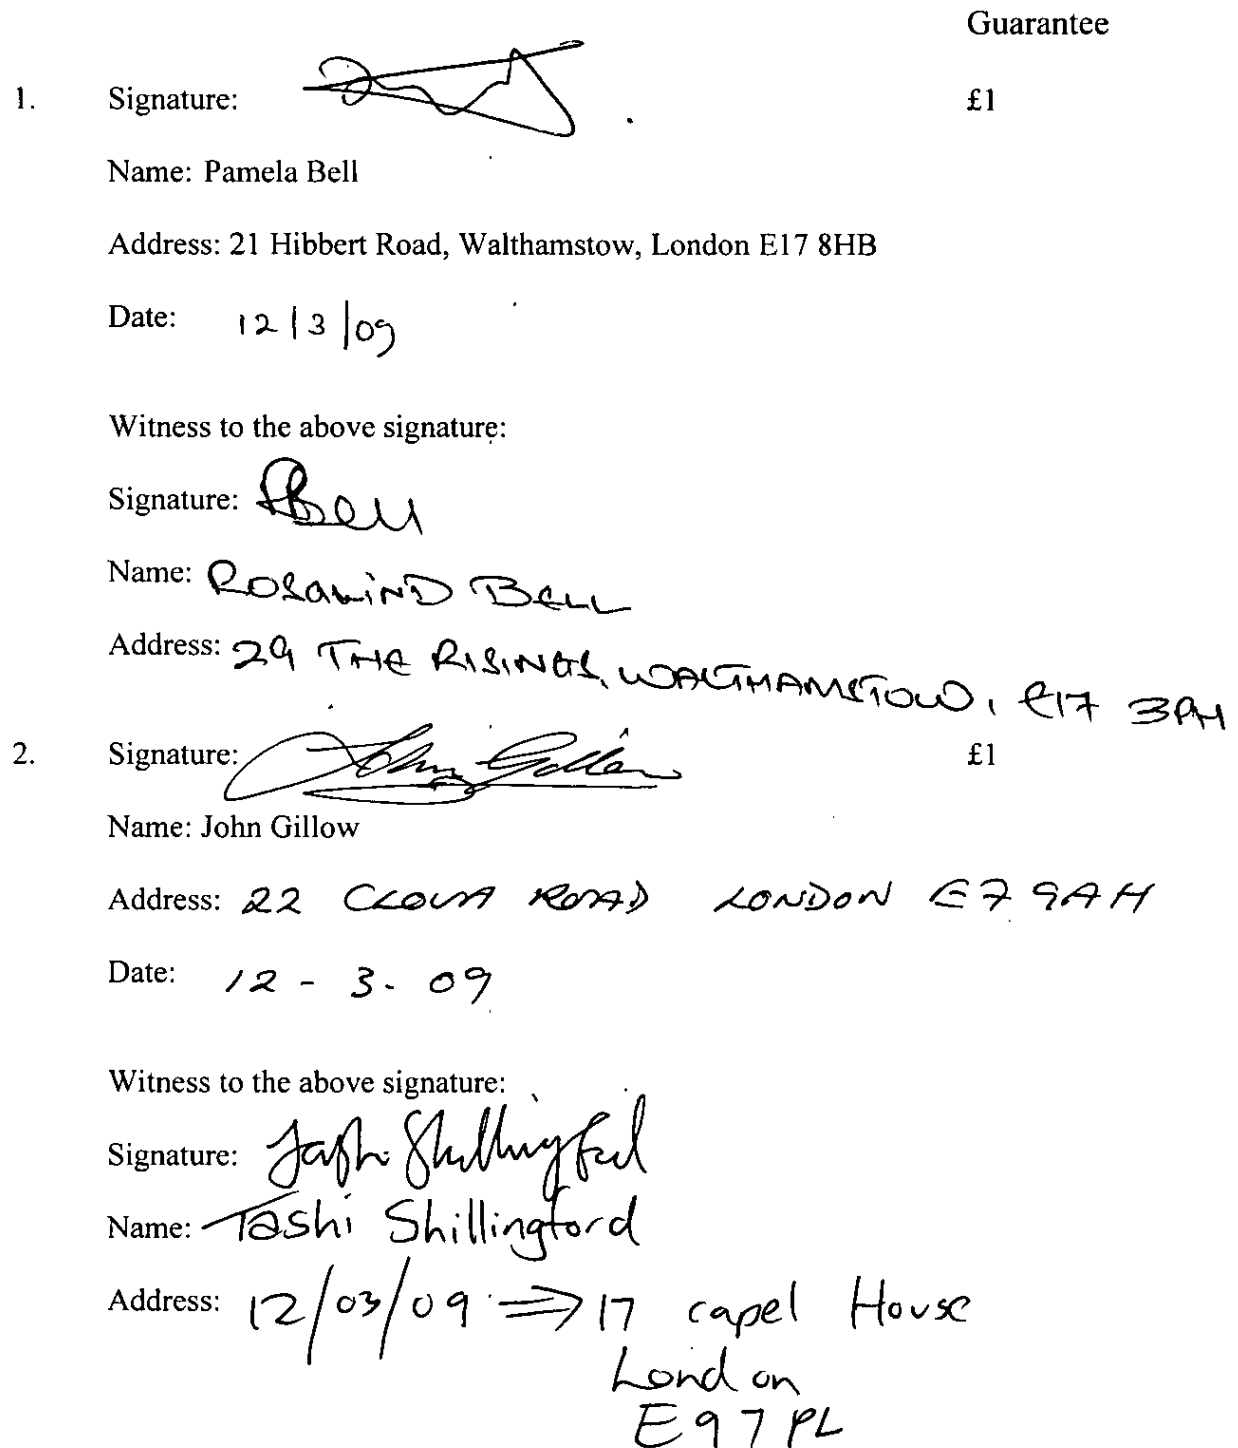 Guarantee
1. Signature: £1
Name: Pamela Bell
Address: 21 Hibbert Road, Walthamstow, London E17 8HB
Date: 12/3/09
Witness to the above signature:
Signature: RBell
Name: ROSALIND BELL
Address: 29 THE RISINGS, WALTHAMSTOW, E17 3PH
2. Signature: John Gillow £1
Name: John Gillow
Address: 22 CLOVA ROAD LONDON E7 9AH
Date: 12 - 3. 09
Witness to the above signature:
Signature: Tashi Shillingford
Name: Tashi Shillingford
Address: 12/03/09 ⇒ 17 capel House
London
E9 7PL